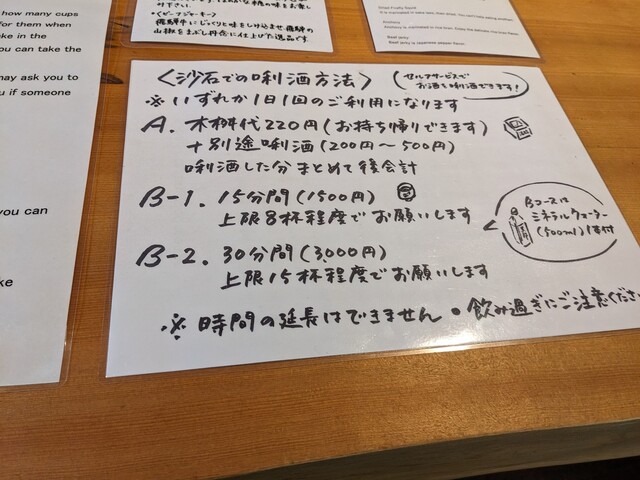 how many cups
for them when
ke in the
u can take the
may ask you to
u if someone
you can
ke
飛騨牛にじっくりと味をしみ込ませ飛騨の
山椒をまぶし丹念に仕上げた逸品です。
Beef jerky
Beef jerky is Japanese pepper flavor.
〈汐石での唎酒方法〉
(セルフサービスで
お酒を唎酒できます!)
※いずれか1日1回のご利用になります
A. 木桝代220円(お持ち帰りできます)
+別途唎酒(200円〜500円)
唎酒した分まとめて後会計
B-1. 15分間(1500円)
上限8杯程度でお願いします
B-2. 30分間(3000円)
上限15杯程度でお願いします
Bコースは
ミネラルウォーター
(500ml)1本付
※時間の延長はできません。飲み過ぎにご注意くださ